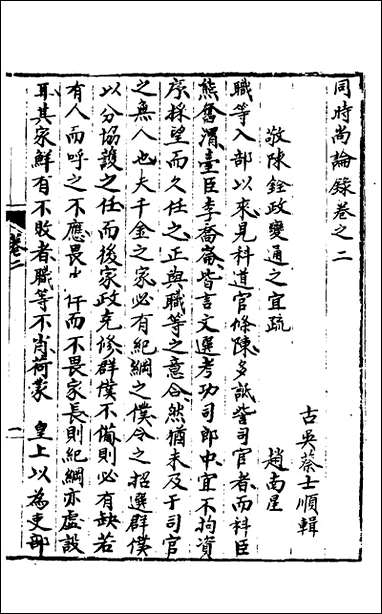 同時尚論錄卷之二
古吳蔡士順輯
敬陳銓政變通之宜疏
趙南星
職等入部以來見科道官條陳多詆訾司官者而科臣
熊奮渭臺臣李喬崙皆言文選考功司郎中宜不拘資
序採望而久任之正與職等之意合然猶未及于司官
之無人也夫千金之家必有紀綱之僕令之招選群僕
以分協護之任而後家政克修群僕不備則必有缺若
有人而呼之不應畏
仵而不畏家長則紀綱亦虛設
耳其家鮮有不敗者職等不肖荷蒙 皇上以為吏部
卷二
一